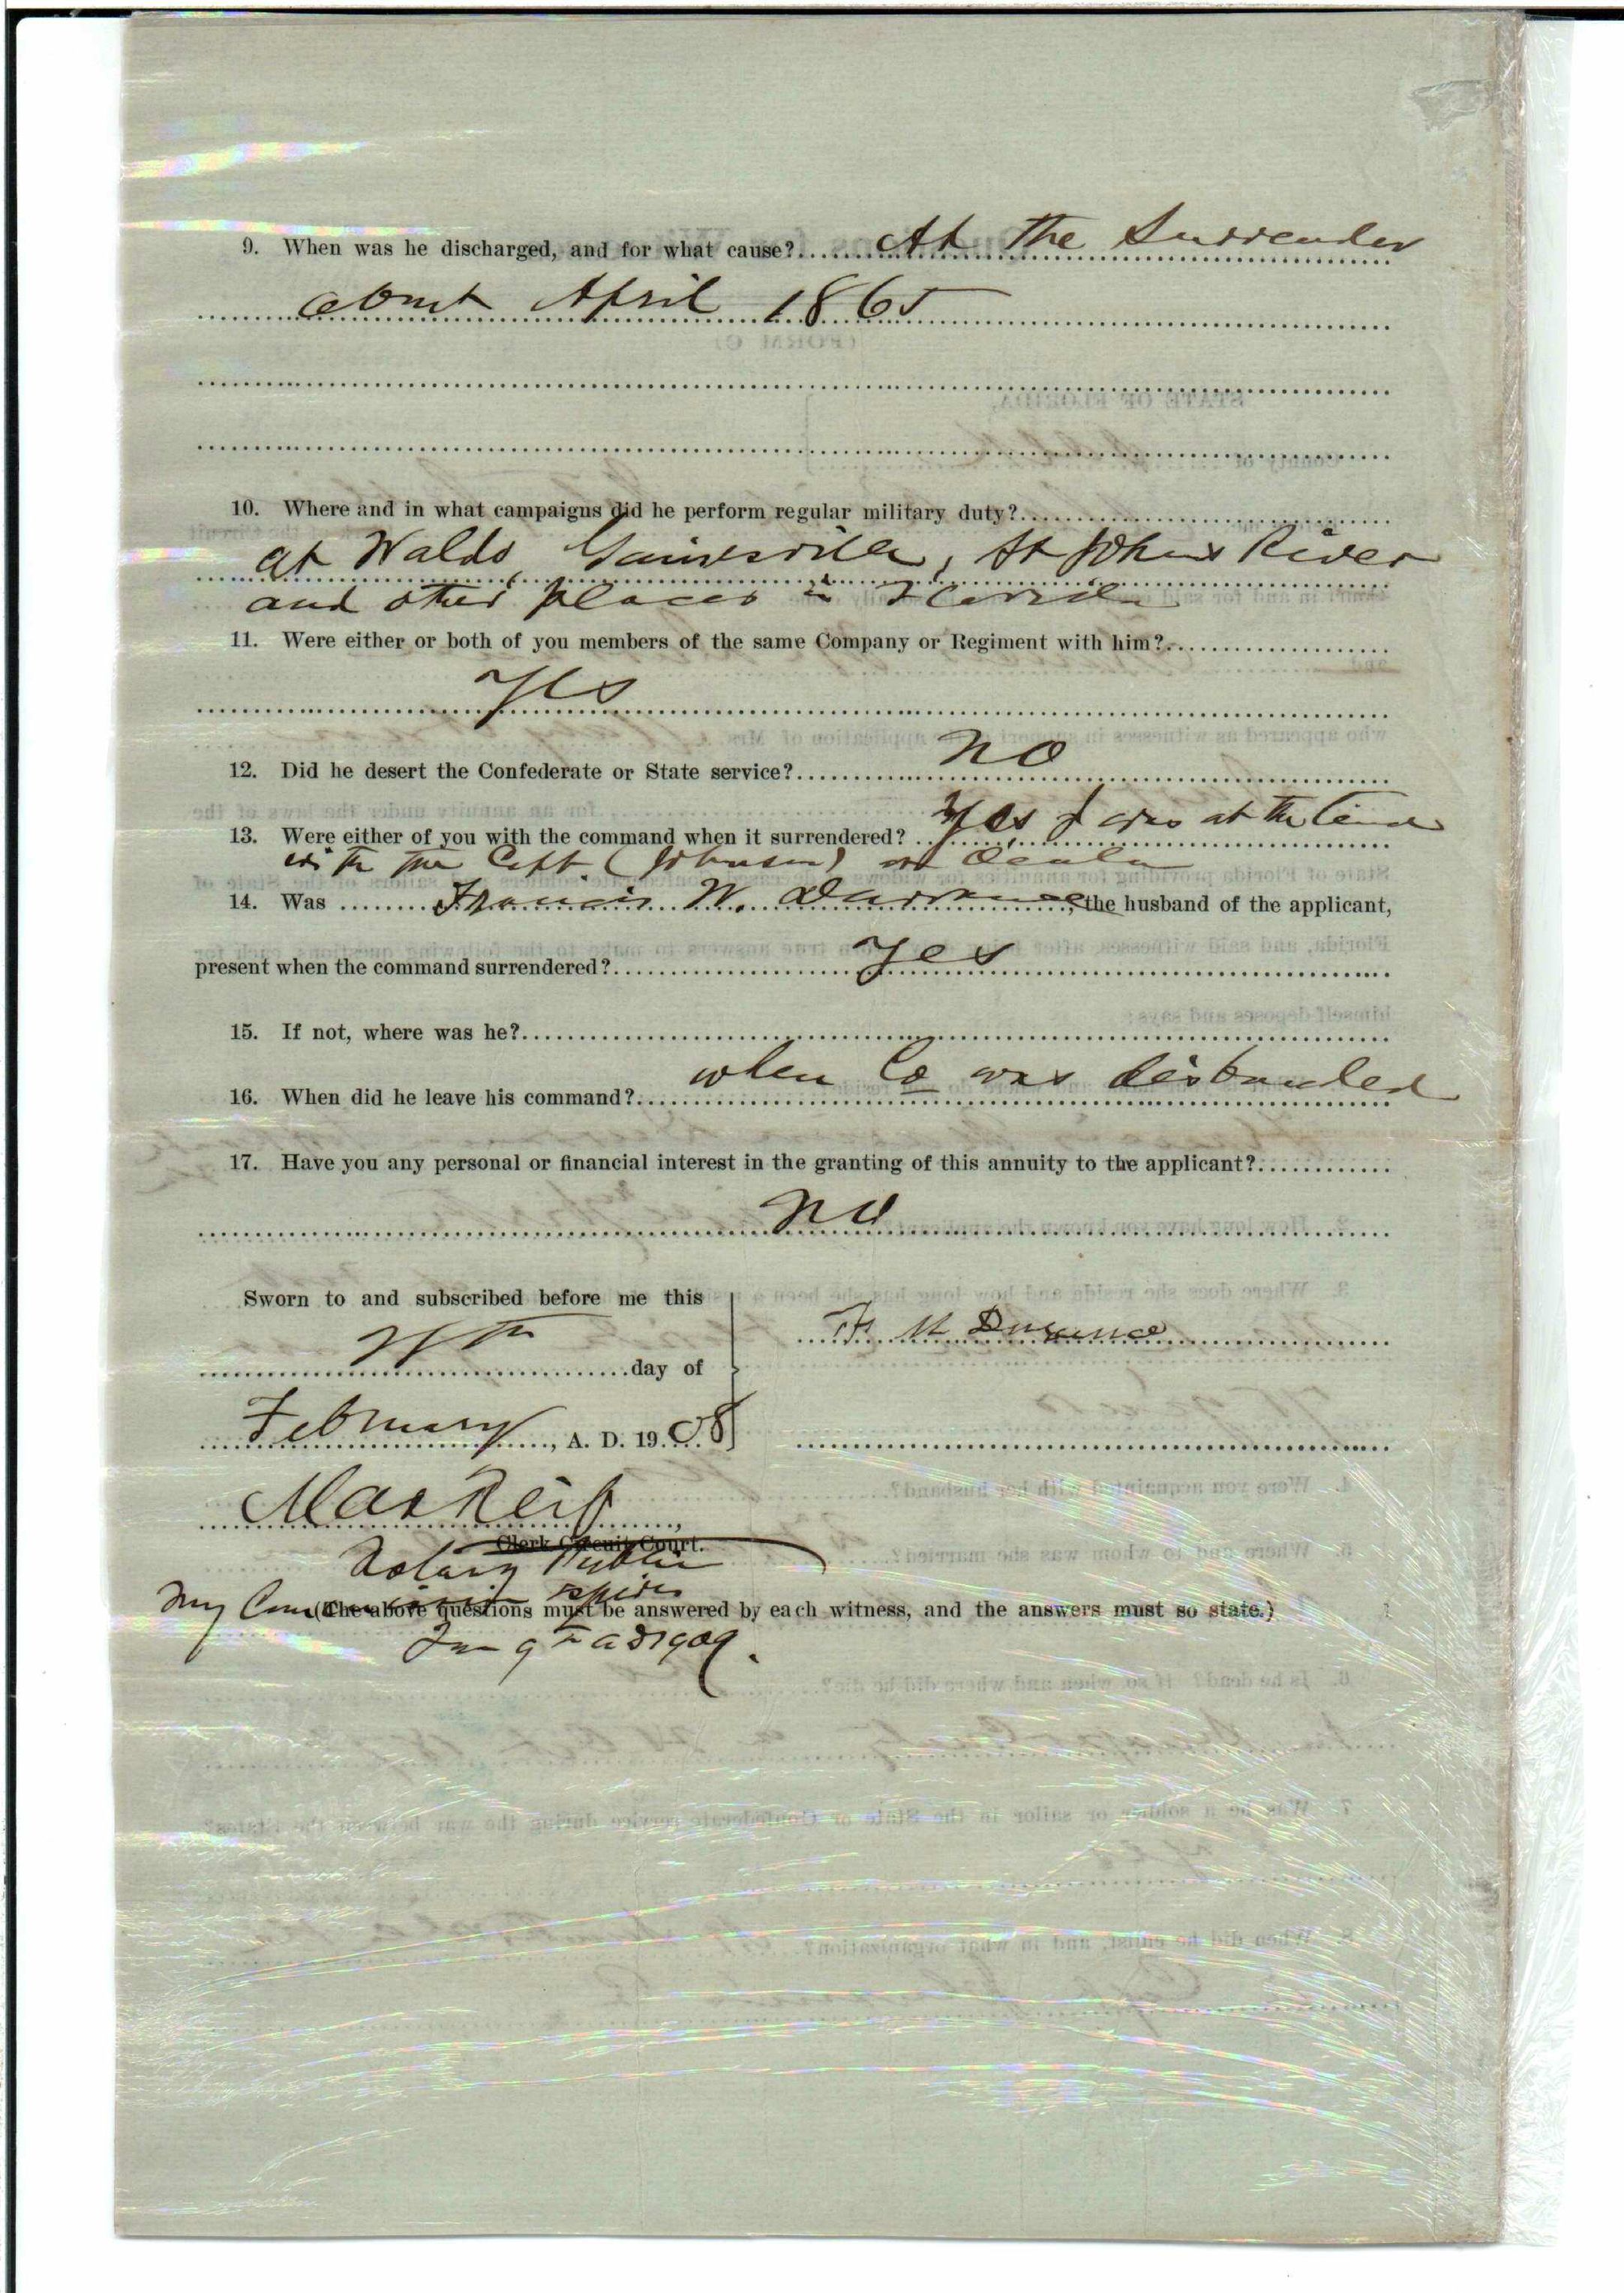 9. When was he discharged, and for what cause? At the Surrender
about April 1865
10. Where and in what campaigns did he perform regular military duty?
at Waldo, Gainesville, St Johns River
and other places in Florida
11. Were either or both of you members of the same Company or Regiment with him?
Yes
12. Did he desert the Confederate or State service? No
13. Were either of you with the command when it surrendered? Yes I was at the time
with the Capt. (Johnson) in Ocala
14. Was Francis W. , the husband of the applicant,
present when the command surrendered? Yes
15. If not, where was he?
16. When did he leave his command? when Co was disbanded
17. Have you any personal or financial interest in the granting of this annuity to the applicant?
No
Sworn to and subscribed before me this
day of
February, A. D. 1908
F M Durrance
Clerk Circuit Court.
Notary Public
My Commission expires
(The above questions must be answered by each witness, and the answers must so state.)
Jan 9th AD 1909.